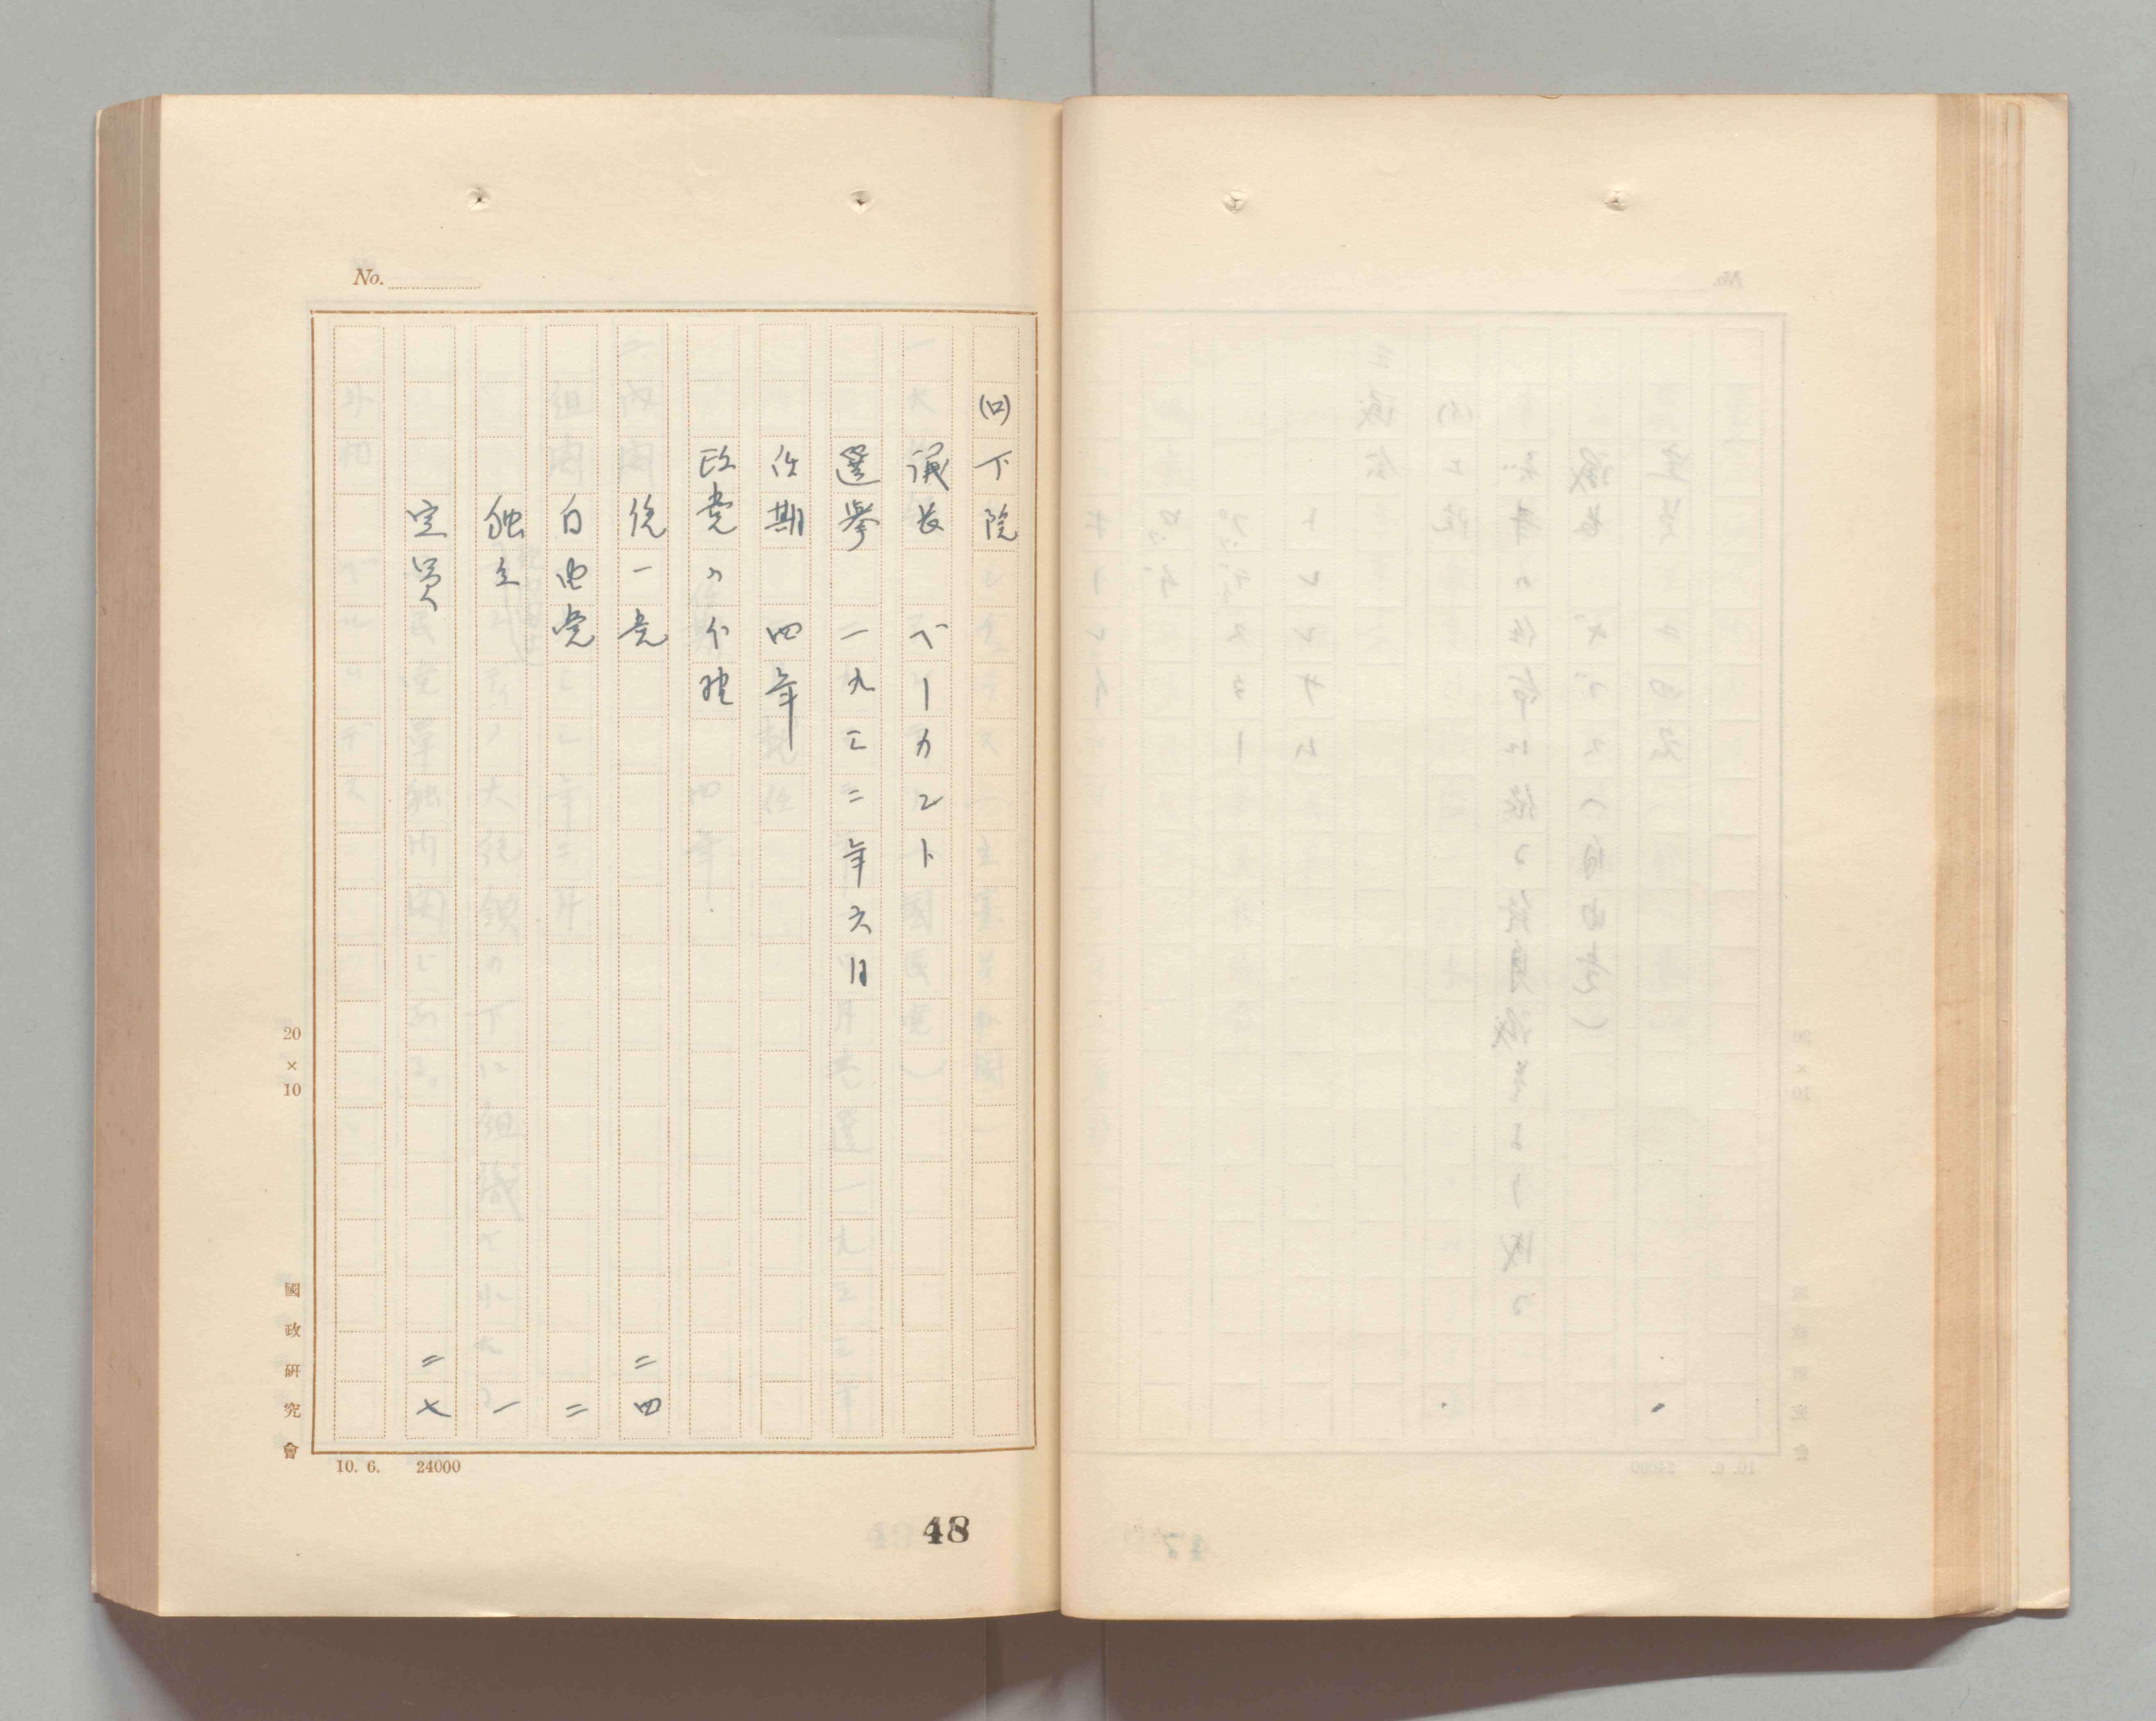 No.
(ロ)下院
議長 ベーカント
選擧 一九三二年六月
任期 四年
政党の分野
統一党 二四
自由党 二
独立 一
定員 二七
20×10
國政研究會
10. 6. 24000
48